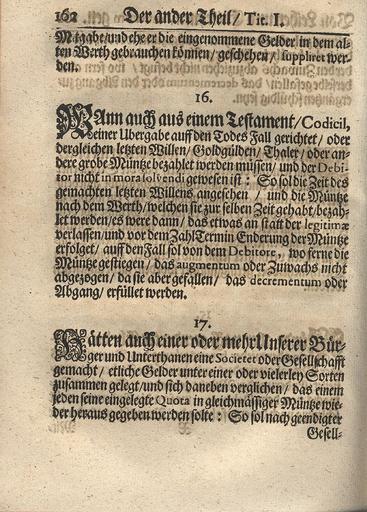 162 Der ander Theil/ Tit. I.
Mitgabe/und ehe er die eingenommene Gelder in dem al-
ten Werth gebrauchen können/ geschehen/ suppliret wer-
den.
16.
WAnn auch aus einem Testament/Codicil,
einer Ubergabe auff den Todes Fall gerichtet/ oder
dergleichen letzten Willen/ Goldgülden/ Thaler/ oder an-
dere grobe Müntze bezahlet werden müssen/ und der Debi-
tor nicht in mora solvendi gewesen ist: So sol die Zeit des
gemachten letzten Willens angesehen / und die Müntze
nach dem Werth/welchen sie zur selben Zeit gehabt/bezah-
let werden/es were dann/ das etwas an statt der legitimæ
verlassen/und vor dem Zahl Termin Enderung der Müntze
erfolget/ auff den Fall sol von dem Debitore, wo ferne die
Müntze gestiegen/ das augmentum oder Zuwachs nicht
abgezogen/ da sie aber gefallen/ das decrementum oder
Abgang/ erfüllet werden.
17.
HAtten auch einer oder mehr Unserer Bür-
ger und Unterthanen eine Societet oder Gesellschafft
gemacht/ etliche Gelder unter einer oder vielerley Sorten
zusammen gelegt/und sich daneben verglichen/ das einem
jeden seine eingelegte Quota in gleichmässiger Müntze wie-
der heraus gegeben werden solte: So sol nach geendigter
Gesell-